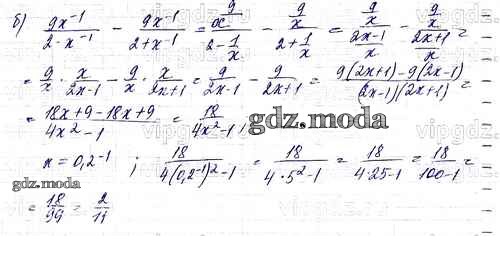 б) 9x⁻¹/(2-x⁻¹) - 9x⁻¹/(2+x⁻¹) = (9/x)/(2-1/x) - (9/x)/(2+1/x) = (9/x)/((2x-1)/x) - (9/x)/((2x+1)/x) =
= 9/x · x/(2x-1) - 9/x · x/(2x+1) = 9/(2x-1) - 9/(2x+1) = (9(2x+1)-9(2x-1))/((2x-1)(2x+1)) =
= (18x+9-18x+9)/(4x²-1) = 18/(4x²-1),
gdz.moda
x = 0,2⁻¹ ; 18/(4(0,2⁻¹)²-1) = 18/(4·5²-1) = 18/(4·25-1) = 18/(100-1) =
gdz.moda
= 18/99 = 2/11